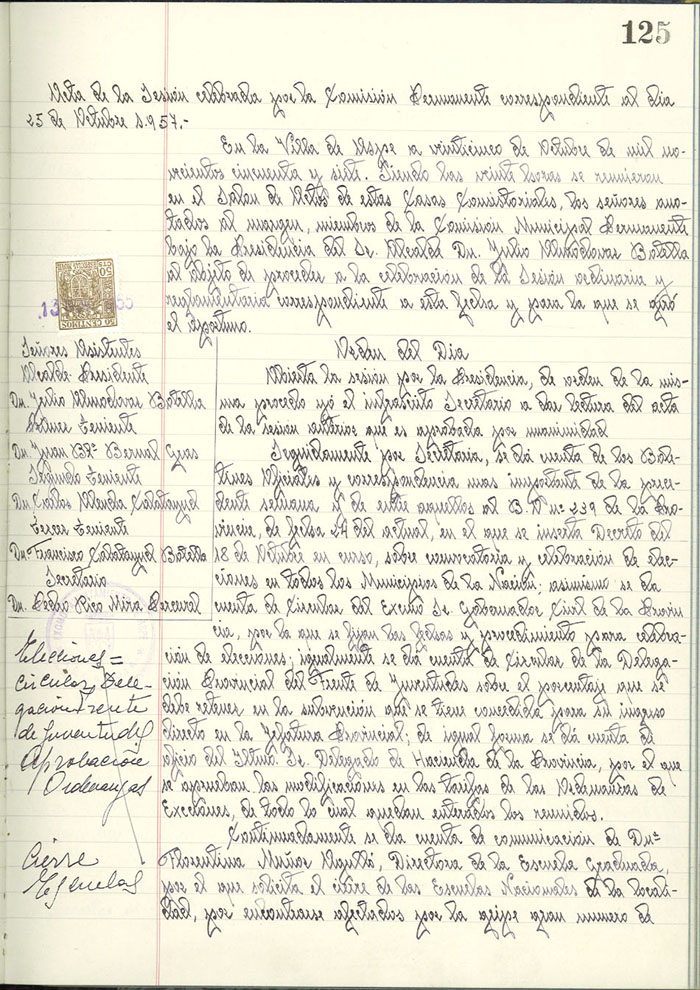 125
Acta de la Sesión celebrada por la Comisión Permanente correspondiente al dia
25 de Octubre 1.957.-
En la Villa de Aspe a vinticinco de Octubre de mil no-
vecientos cincuenta y siete. Siendo las veinte horas se reunieron
en el Salon de Actos de estas Casas Consistoriales, los señores ano-
tados al margen, miembros de la Comisión Municipal Permanente
bajo la Presidencia del Sr. Alcalde Dn. Julio Almodovar Botella
al objeto de proceder a la celebracion de la Sesión ordinaria y
reglamentaria correspondiente a esta fecha y para la que se citó
el oportuno.
50 CENTIMOS
Señores Asistentes
Alcalde-Presidente
Dn. Julio Almodovar Botella
Primer Teniente
Dn. Juan Btª Bernal
Segundo Teniente
Dn. Carlos Calatayud
Tercer Teniente
Dn. Francisco Calatayud Botella
Secretario
Dn. Pedro Rico Mira Perceval
Orden del Dia
Abierta la sesión por la Presidencia, de orden de la mis-
ma procedo yó el infrascrito Secretario a dar lectura del acta
de la sesion anterior que es aprobada por unanimidad
Seguidamente por Secretaria, se dá cuenta de los Bole-
tines Oficiales y correspondencia mas importante de la prece-
dente semana y de entre aquellos al B. O nº 239 de la Pro-
vincia, de fecha 24 del actual, en el que se inserta Decreto del
18 de Octubre en curso, sobre convocatoria y celebración de elec-
ciones en todos los Municipios de la Nación; asimismo se da
cuenta de Circular del Excmo Sr. Gobernador Civil de la Provin
cia, por la que se fijan las fechas y procedimiento para celebra-
ción de elecciones; igualmente se dá cuenta de Circular de la Delega-
ción Provincial del Frente de Juventudes sobre el porcentaje que se
debe retener en la subvención que se tiene concedida para su ingreso
directo en la Jefatura Provincial; de igual forma se dá cuenta de
oficio del Iltmo. Sr. Delegado de Hacienda de la Provincia, por el que
se aprueban las modificaciones en las tarifas de las Ordenanzas de
Exacciones, de todo lo cual quedan enterados los reunidos.
Elecciones=
Circular Dele-
gación Frente
de Juventudes
Aprobación
Ordenanzas
Continuadamente se da cuenta de comunicación de Dnª
Florentina Muñoz, Directora de la Escuela Graduada,
por el que solicita el cierre de las Escuelas Nacionales de la locali-
dad, por encontrarse afectados por la gripe gran numero de
Cierre
Escuelas